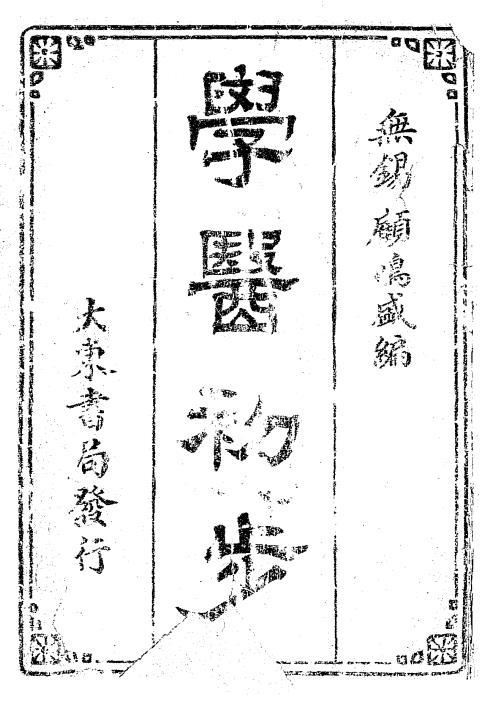 無錫顧鳴盛編
學醫初步
大東書局發行